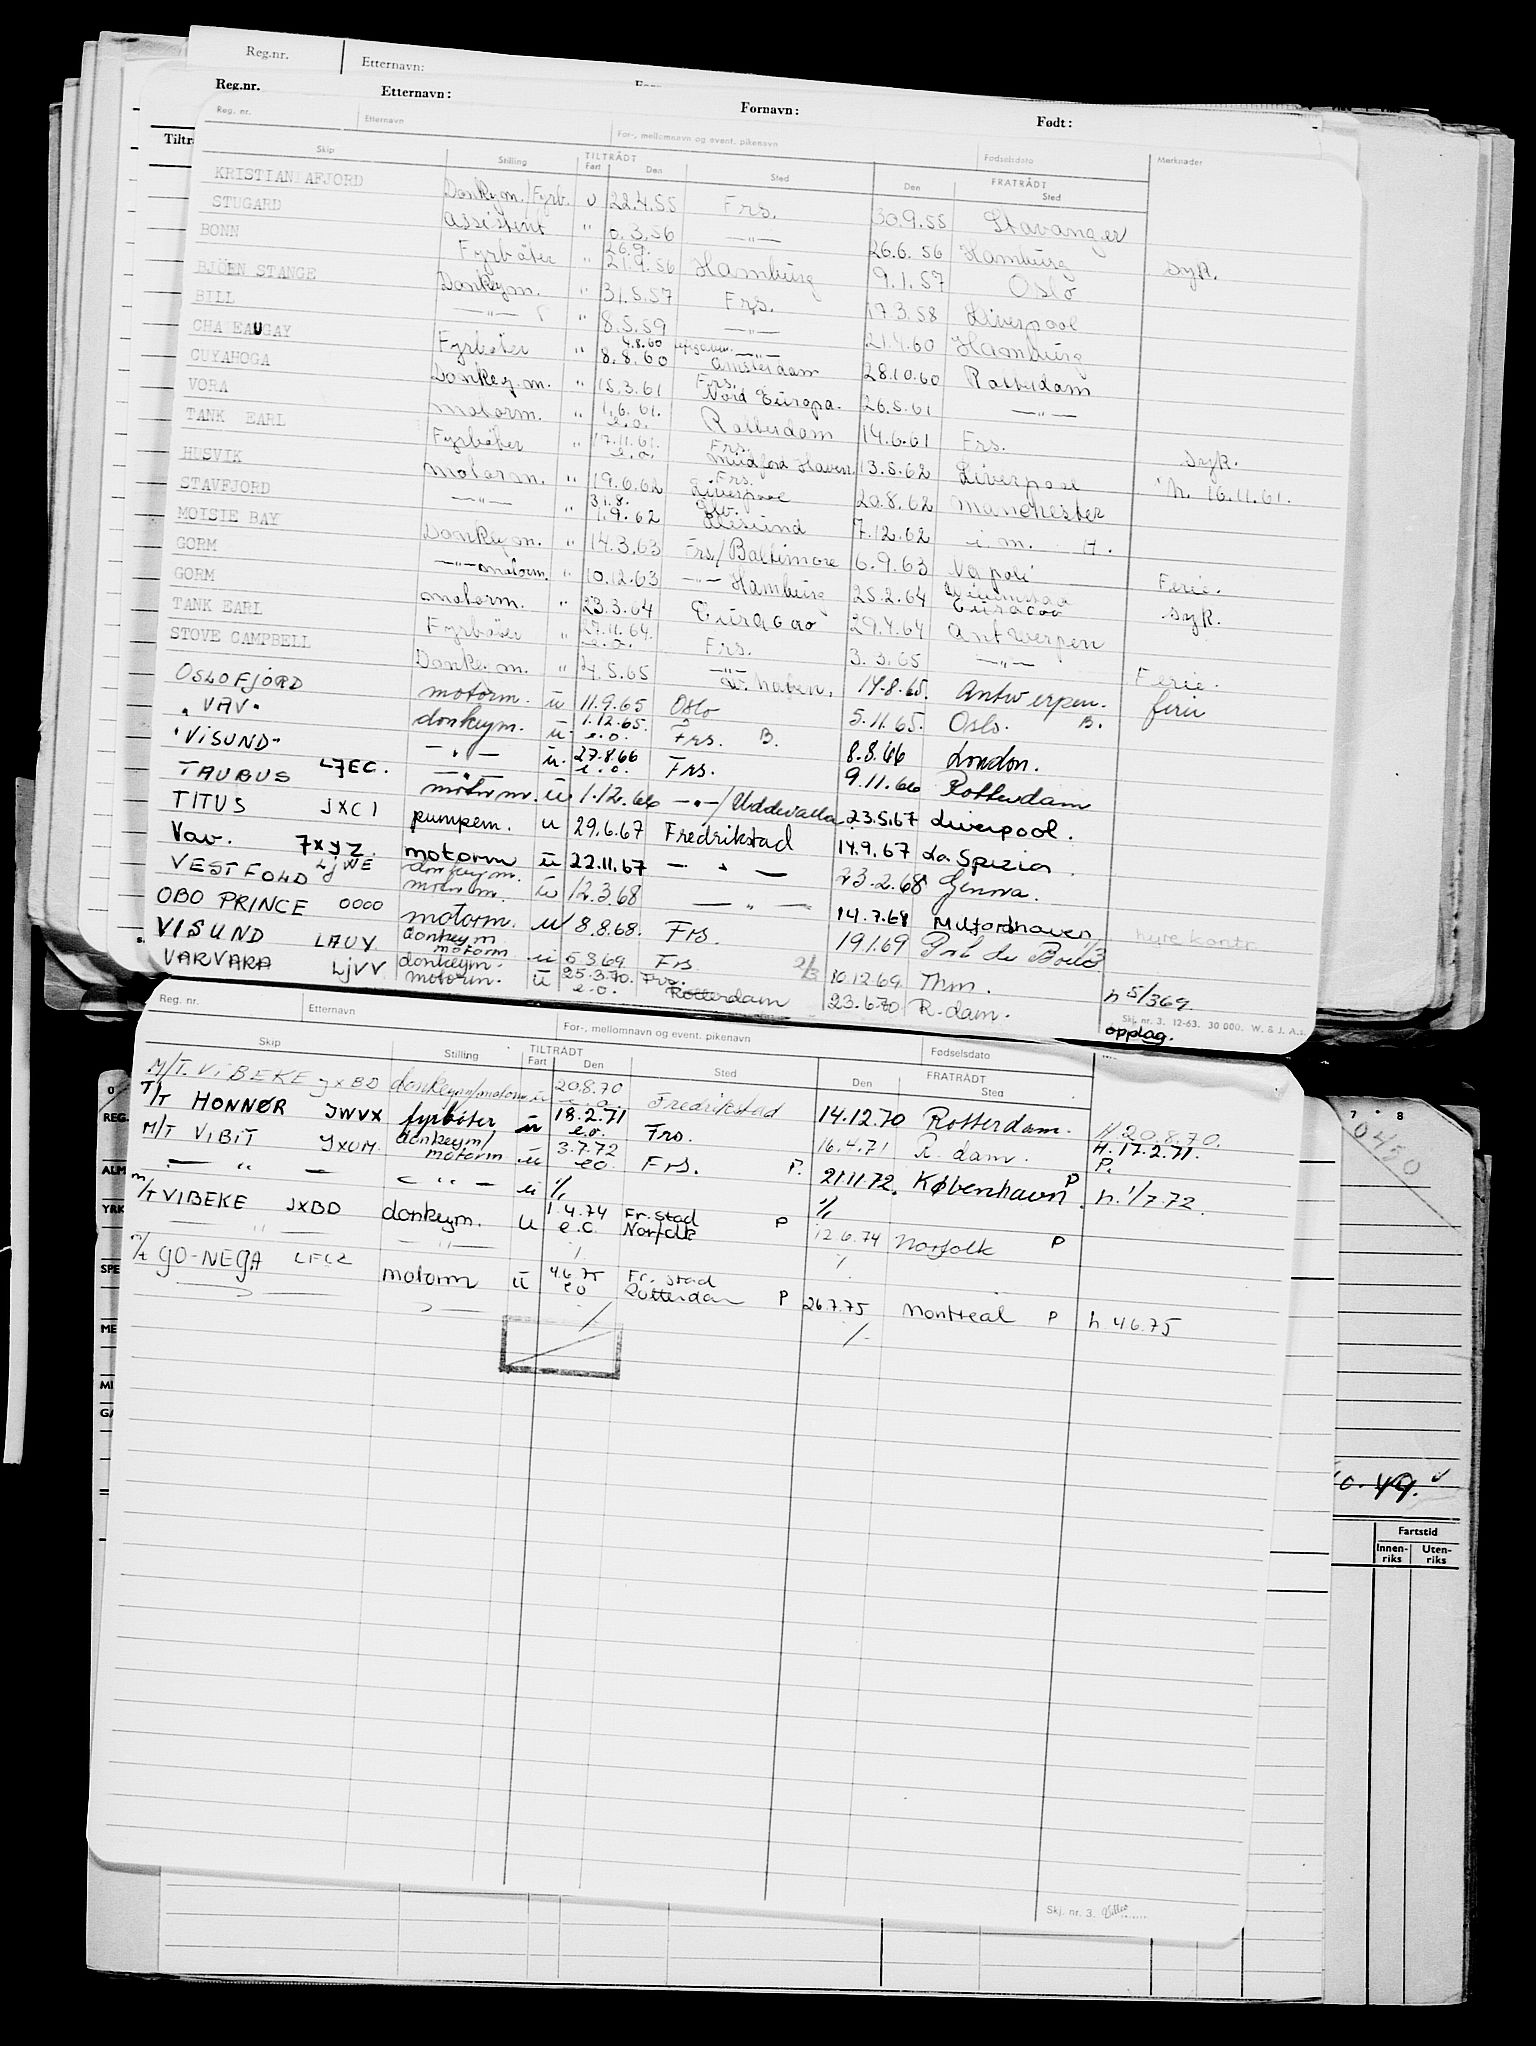 Reg.nr. Etternavn:
Reg.nr. Etternavn: Fornavn: Født:
Reg. nr. Etternavn For-, mellomnavn og event. pikenavn Fødselsdato Merknader
Skip Stilling TILTRÅDT Fart Den Sted FRATRÅDT Den Sted
KRISTIANIAFJORD Donkeym./Fyrb. U 22.4.55 Frs. 30.9.55 Stavanger
STUGARD assistent " 6.3.56 —"— 26.6.56 Hamburg syk.
BONN Fyrbøter " 26.9. 21.9.56 Hamburg 9.1.57 Oslo
BJÖEN STANGE Donkeym. " 31.5.57 Frs. 17.3.58 Liverpool
BILL —"— " 8.5.59 —"— 21.4.60 Hamburg
CHA EAUGAY Fyrbøter " 4.8.60 8.8.60 —"— Amsterdam 28.10.60 Rotterdam
CUYAHOGA Donkey.m. " 15.3.61 Frs. Nord Europa. 26.5.61 —"—
VORA motorm. " 1.6.61. e.o. Rotterdam 14.6.61 Frs. syk.
TANK EARL Fyrbøter " 17.11.61. e.o. Frs. Milford Haven 13.5.62 Liverpool h. 16.11.61.
HUSVIK motorm. " 19.6.62 Frs. Liverpool 20.8.62 Manchester
STAVFJORD —"— " 31.8. 1.9.62 Ålesund 7.12.62 i.m. H.
MOISIE BAY Donkeym. " 14.3.63 Frs/Baltimore 6.9.63 Napoli Ferie.
GORM —"— motorm. " 10.12.63 —"— Hamburg 25.2.64 Curacao syk.
GORM motorm. " 23.3.64 Curacao 29.4.64 Antwerpen
TANK EARL Fyrbøter " 27.11.64. e.o. Frs. 3.3.65 —"— Ferie.
STOVE CAMPBELL Donke.m. " 4.5.65 —"— haven. 14.8.65. Antwerpen. ferie
OSLOFJORD motorm. ü 11.9.65 Oslo 5.11.65. Oslo. B.
"VAV" donkeym. ü 1.12.65. e.o. Frs. B. 8.8.66 London.
"VISUND" LJEC. —"— ü. 27.8.66 e.o. Frs. 9.11.66 Rotterdam
TAURUS —"— motorm. ü 1.12.66 —"—/Uddevalla 23.5.67 Liverpool.
TITUS JXCI pumpem. u 29.6.67 Fredrikstad 14.9.67 La Spezia.
Vav. 7xyz motorm ü 22.11.67 — " — 23.2.68 Genova.
VESTFOLD LJWE donkeym. motorm. ü 12.3.68 — " — 14.7.68 Milfordhaven hyre kontr.
OBO PRINCE 0000 motorm. u 8.8.68. Frs. 19.1.69 Port de Bouc
VISUND LAUY donkeym motorm ü 5.3.69 Frs 2/3 10.12.69 Thm. h 5/369
VARVARA LJVV donkeym. motorm. ü 25.3.70. e.o. Frs. Rotterdam 23.6.70 R-dam. opplag.
Skj. nr. 3. 12-63. 30 000. W. & J. A.s.
Reg. nr. Etternavn For-, mellomnavn og event. pikenavn Fødselsdato
Skip Stilling TILTRÅDT Fart Den Sted FRATRÅDT Den Sted
M/T. ViBEKE JXBD donkeym/motorm ü 20.8.70 e.o. Fredrikstad 14.12.70 Rotterdam. H. 20.8.70.
T/T HONNØR JWVX fyrbøter ü 18.2.71 e.o. Frs. 16.4.71 R. dam. H. 17.2.71. P.
M/T VIBIT JXOM. donkeym/ motorm ü 3.7.72 eo Frs. P. 21.11.72. København. P h. 1/7.72.
— " — — " — ü 1/1 1/1
M/T VIBEKE JXBD donkeym. u 1 4.74 e.o. Fr.stad Norfolk P 12 6.74 Norfolk P
— " — — " — / /
M/t GO-NEGA LFCZ motorm ü 4.6.75 eo Fr. stad Rotterdam P 26.7.75 Montreal P h 4.6.75
Skj. nr. 3.
7 • 8
0450
REG.
ALM
YRK
SPE
ME
MI
Fartstid
Innen-riks Uten-riks